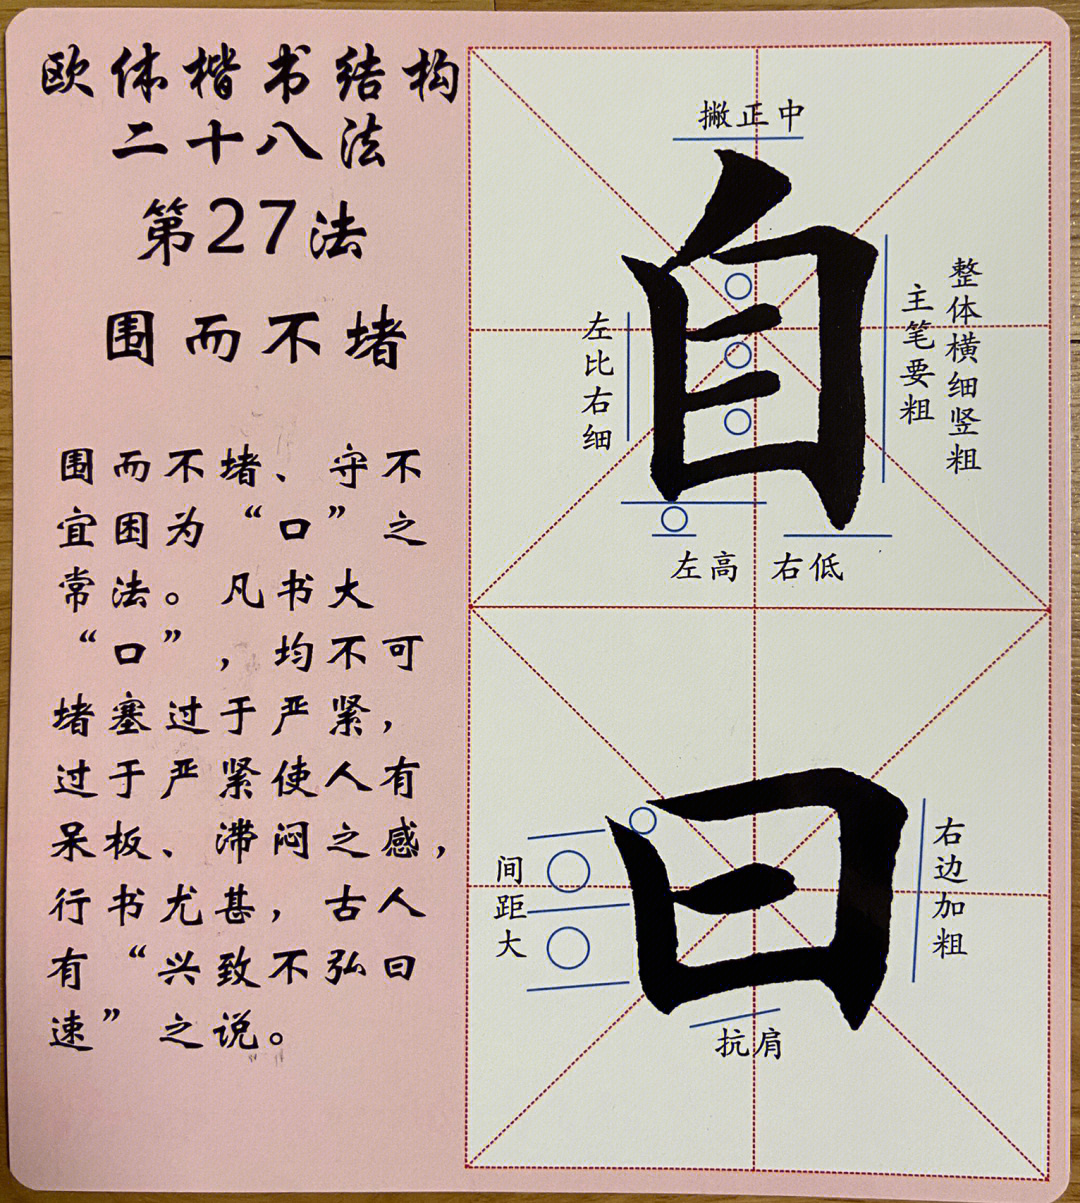 欧体楷书结构
二十八法
第27法
围而不堵
围而不堵、守不
宜困为“口”之
常法。凡书大
“口”，均不可
堵塞过于严紧，
过于严紧使人有
呆板、滞闷之感，
行书尤甚，古人
有“兴致不弘曰
速”之说。
撇正中
自
左比右细
主笔要粗
整体横细竖粗
左高 右低
曰
间距大
右边加粗
抗肩